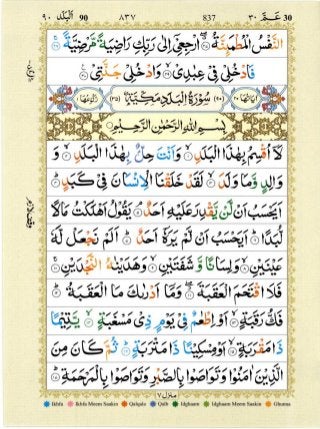 ٩٠ البلد 90 ٨٣٧ 837 ٣٠ عـم 30
النَّفْسُ الْمُطْمَئِنَّةُ ۝ ارْجِعِىْٓ اِلٰى رَبِّكِ رَاضِيَةً مَّرْضِيَّةً ۝
فَادْخُلِىْ فِىْ عِبٰدِىْ ۝ وَادْخُلِىْ جَنَّتِىْ ۝
اٰيَاتُهَا ٢٠ (٩٠) سُوْرَةُ الْبَلَدِ مَكِّيَّةٌ (٣٥) رُكُوْعُهَا ١
بِسْمِ اللّٰهِ الرَّحْمٰنِ الرَّحِيْمِ
لَآ اُقْسِمُ بِهٰذَا الْبَلَدِ ۝ وَاَنْتَ حِلٌّۢ بِهٰذَا الْبَلَدِ ۝ وَ
وَالِدٍ وَّمَا وَلَدَ ۝ لَقَدْ خَلَقْنَا الْاِنْسَانَ فِىْ كَبَدٍ ۝
اَيَحْسَبُ اَنْ لَّنْ يَّقْدِرَ عَلَيْهِ اَحَدٌ ۝ يَقُوْلُ اَهْلَكْتُ مَالًا
لُّبَدًا ۝ اَيَحْسَبُ اَنْ لَّمْ يَرَهٗٓ اَحَدٌ ۝ اَلَمْ نَجْعَلْ لَّهٗ
عَيْنَيْنِ ۝ وَلِسَانًا وَّ شَفَتَيْنِ ۝ وَهَدَيْنٰهُ النَّجْدَيْنِ ۝
فَلَا اقْتَحَمَ الْعَقَبَةَ ۝ وَمَآ اَدْرٰىكَ مَا الْعَقَبَةُ ۝
فَكُّ رَقَبَةٍ ۝ اَوْ اِطْعٰمٌ فِىْ يَوْمٍ ذِىْ مَسْغَبَةٍ ۝ يَّتِيْمًا
ذَا مَقْرَبَةٍ ۝ اَوْ مِسْكِيْنًا ذَا مَتْرَبَةٍ ۝ ثُمَّ كَانَ مِنَ
الَّذِيْنَ اٰمَنُوْا وَتَوَاصَوْا بِالصَّبْرِ وَتَوَاصَوْا بِالْمَرْحَمَةِ ۝
منزل ٧
Ikhfa Ikhfa Meem Saakin Qalqala Qalb Idghaam Idghaam Meem Saakin Ghunna